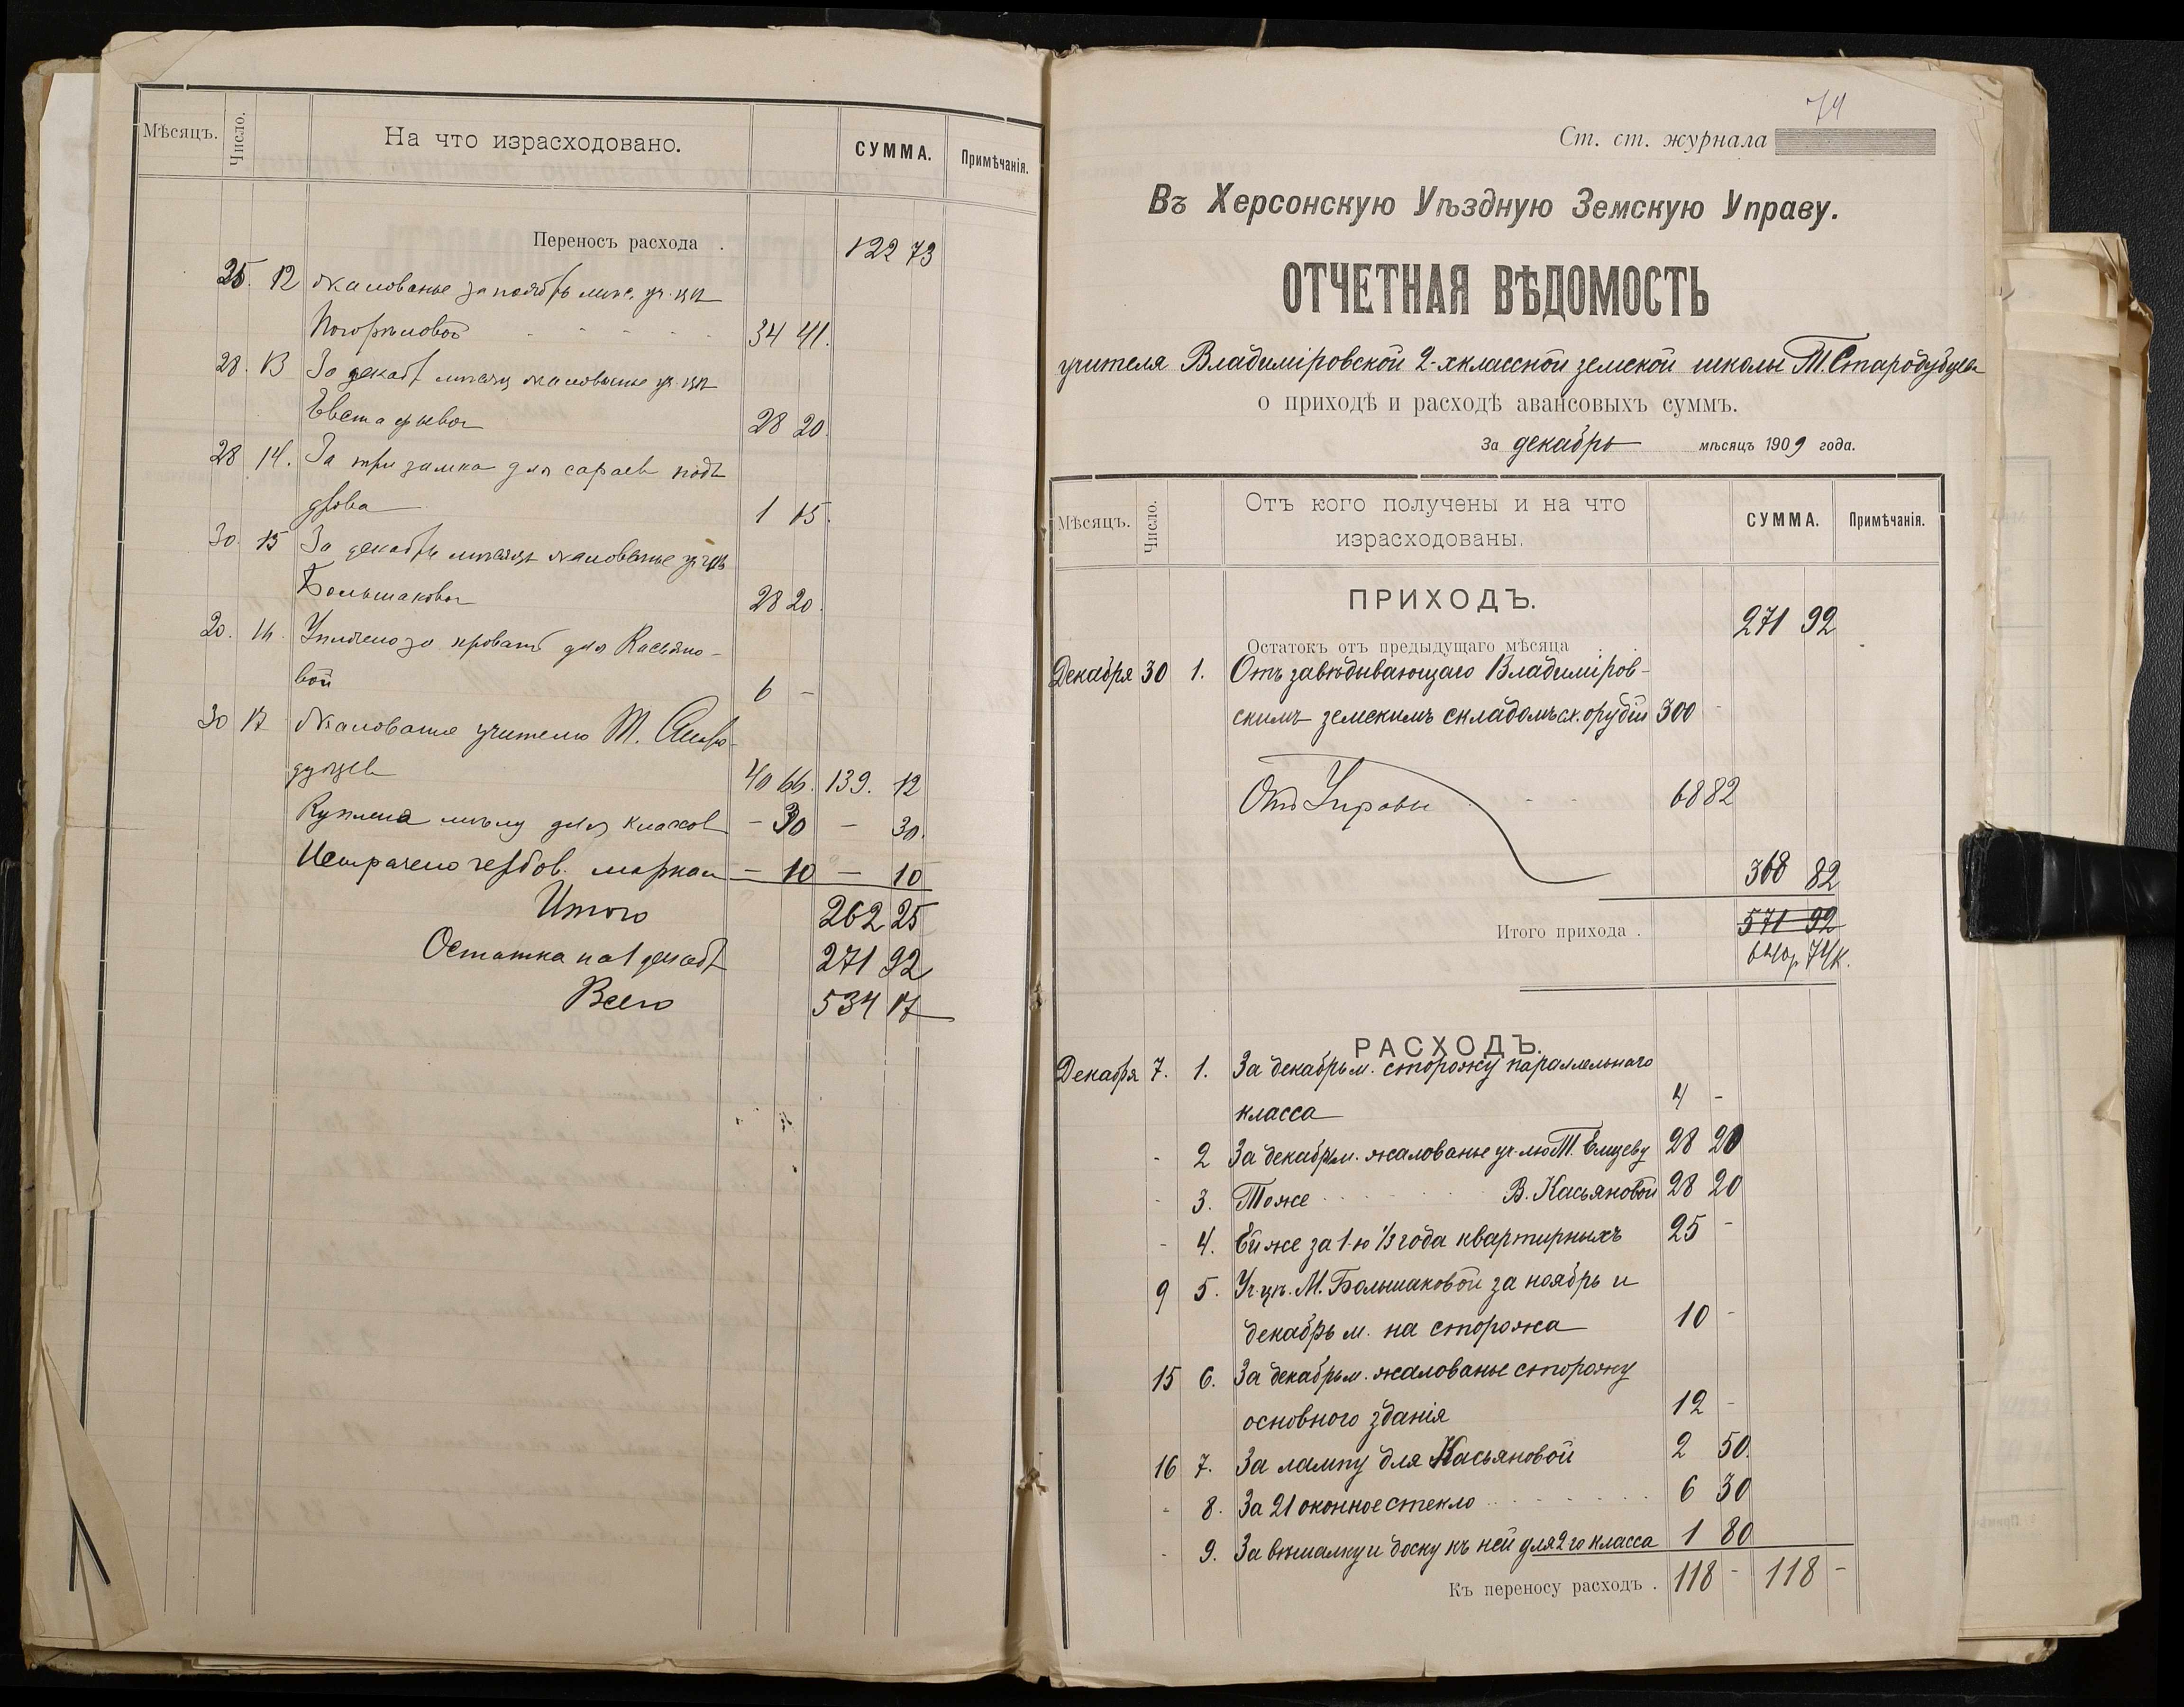 Мѣсяцъ. Число. На что израсходовано. СУММА. Примѣчанія.
Переносъ расхода . 122 73
25. 12 Жалованье за ноябрь мѣс. уч-цѣ
Погорѣловой 34 41.
28. 13 За декаб мѣсяц жалованье уч-цѣ
28 20.
28 14. За три замка для сараевъ подъ
дрова 1 15.
30. 15 За декабрь мѣсяцъ жалованье уч-цѣ
Большаковой 28 20.
20. 16. Уплочено за кровать для Касьяно-
вой 6 -
30 17 Жалованье учителю Т. Старо-
дубцев 40 66. 139. 12
Куплена мѣлу для класов - 30 - 30.
Истрачено гербов. марками - 10 - 10
Итого 262 25
Остатка на 1 декаб 271 92
Всего 534 17
74
Ст. ст. журнала
Въ Херсонскую Уѣздную Земскую Управу.
ОТЧЕТНАЯ ВѢДОМОСТЬ
учителя Владиміровской 2-хклассной земской школы Т. Стародубцев
о приходѣ и расходѣ авансовыхъ суммъ.
За декабрь мѣсяцъ 1909 года.
Мѣсяцъ. Число. Отъ кого получены и на что израсходованы. СУММА. Примѣчанія.
ПРИХОДЪ.
Остатокъ отъ предыдущаго мѣсяца 271 92
Декабря 30 1. Отъ завѣдывающаго Владиміров-
скимъ земскимъ складомъ с.х. орудій 300 -
Отъ Управы 68 82
368 82
Итого прихода . 571 92
640р. 74к.
РАСХОДЪ.
Декабря 7. 1. За декабрь м. сторожу параллельнаго
класса 4 -
- 2 За декабрь м. жалованье уч-лю Т. Емцеву 28 20
- 3. Тоже В. Касьяновой 28 20
- 4. Ей же за 1-ю 1/3 года квартирныхъ 25 -
9 5. Уч-цѣ. М. Большаковой за ноябрь и
декабрь м. на сторожа 10 -
15 6. За декабрь м. жалованье сторожу
основного зданія 12 -
16 7. За лампу для Касьяновой 2 50.
- 8. За 21 оконное стекло 6 30
- 9. За вѣшалку и доску къ ней для 2го класса 1 80
Къ переносу расходъ . 118 - 118 -